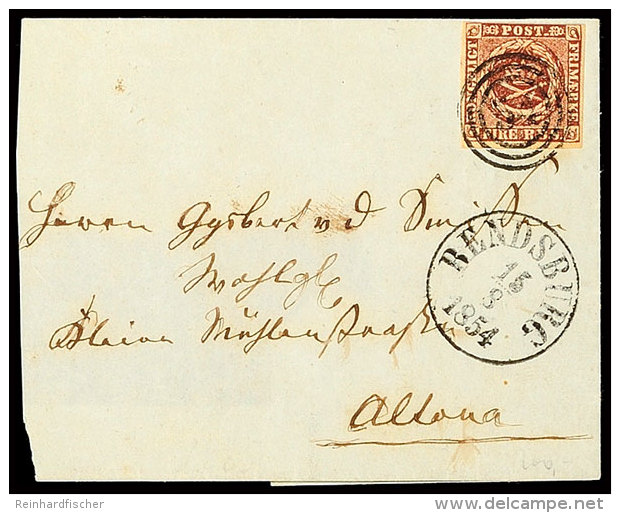 POST.
FRIMÆRKE
FIRE R.B.S.
Herrn Gysbert v d Smissen
Wohlgb
RENDSBURG
15
8
1854
Kleine Mühlenstrasse
Altona
Reinhardfischer
www.delcampe.net